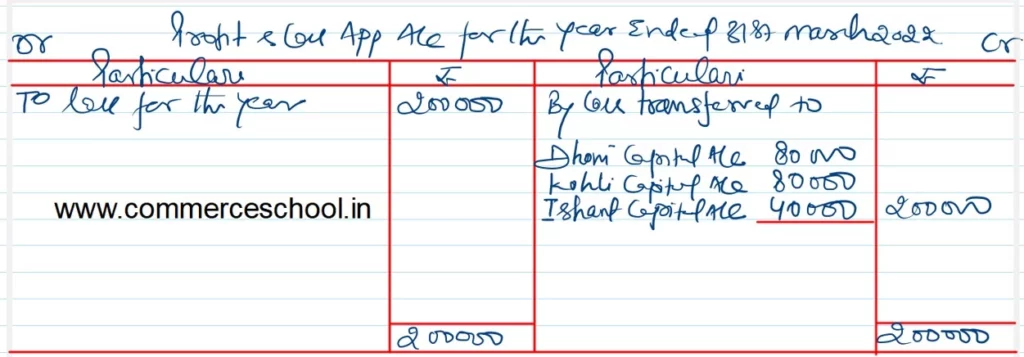 Dr Profit & Loss App A/c for the year Ended 31st march 2022 Cr
Particulars ₹ Particulars ₹
To loss for the year 200000 By loss transferred to
Dhoni Capital A/c 80000
Kohli Capital A/c 80000
www.commerceschool.in Ishant Capital A/c 40000 200000
200000 200000